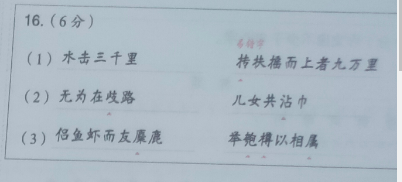 16.(6分)
易错字
(1) 水击三千里 抟扶摇而上者九万里
(2) 无为在歧路 儿女共沾巾
(3) 侣鱼虾而友麋鹿 举匏樽以相属